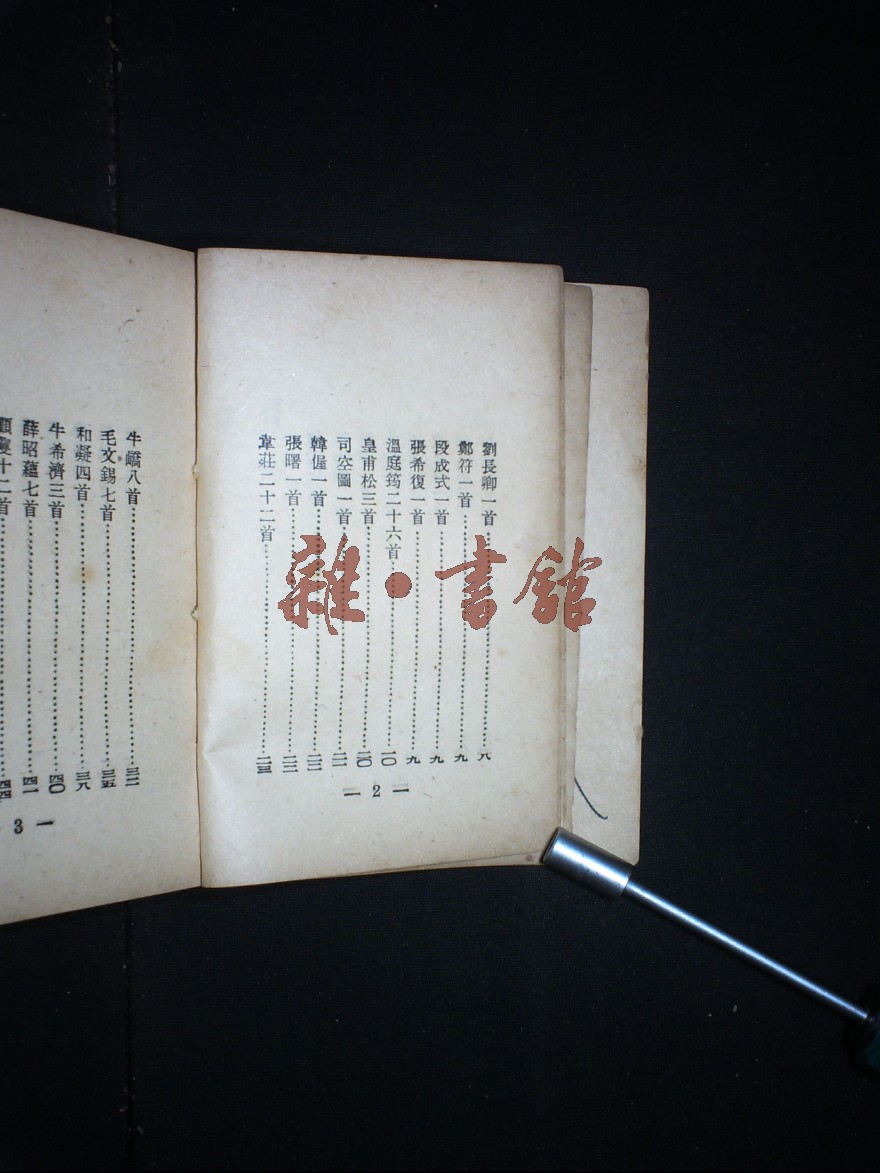 劉長卿一首……八
鄭符一首……九
段成式一首……九
張希復一首……九
溫庭筠二十六首……一〇
皇甫松三首……二〇
司空圖一首……二一
韓偓一首……二二
張曙一首……二二
韋莊二十二首……二三
— 2 —
牛嶠八首……三二
毛文錫七首……三五
和凝四首……三八
牛希濟三首……四〇
薛昭蘊七首……四一
顧敻十二首……四四
3 —
雜·書館